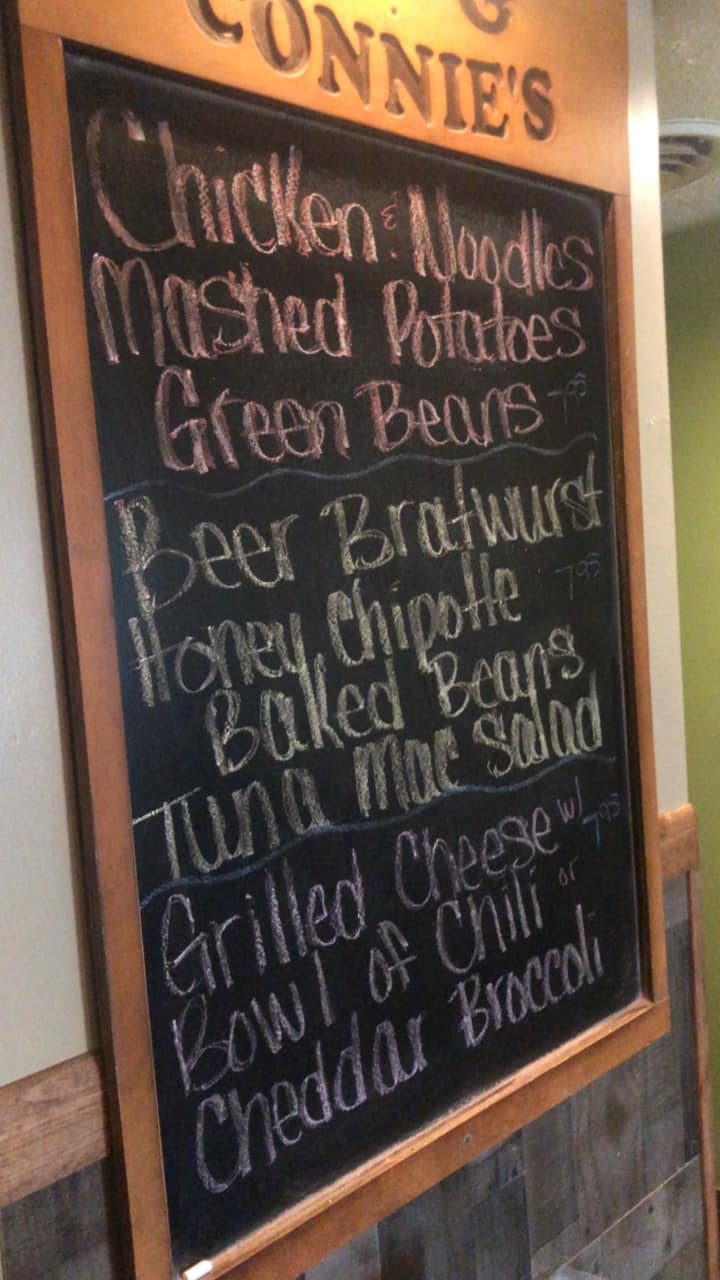 &
CONNIE'S
Chicken & Noodles
Mashed Potatoes
Green Beans 7.95
Beer Bratwurst
Honey Chipotle 7.95
Baked Beans
Tuna Mac Salad
Grilled Cheese w/ 7.95
Bowl of Chili or
Cheddar Broccoli